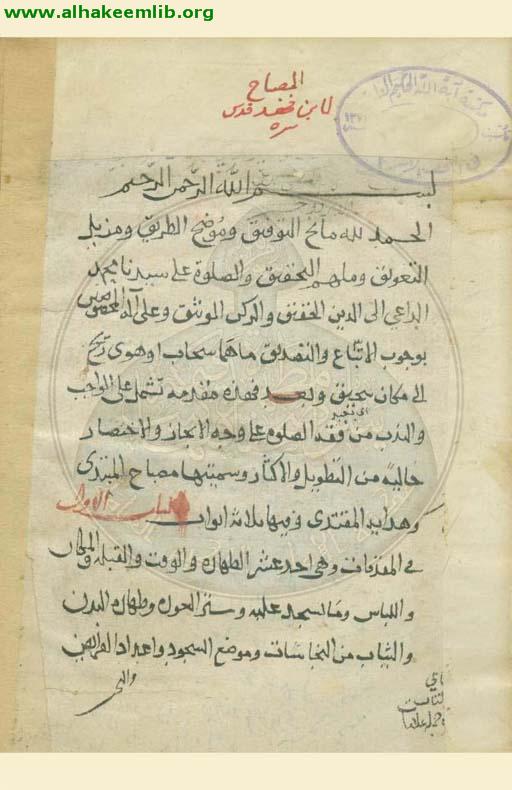 www.alhakeemlib.org
المصباح
لابن فهد قدس
سره
بسم الله الرحمن الرحيم
الحمد لله مانح التوفيق وموضح الطريق ومزيل
التعويق وملهم التحقيق والصلوة على سيدنا محمد
الداعي الى الدين الحقيق والركن الوثيق وعلى آله المخصوصين
بوجوب الاتباع والتصديق ما هما سحاب او هوى ريح
في مكان سحيق وبعد فهذه مقدمة تشتمل على الواجب
والندب من فقه الصلوة على وجه الايجاز والاختصار
خالية من التطويل والاكثار وسميتها مصباح المبتدى
وهداية المقتدى وفيها ثلاثة ابواب الباب الاول
في المقدمات وهي احد عشر الطهارة والوقت والقبلة والمكان
واللباس وما يسجد عليه وستر العورة وطهارة البدن
والثياب من النجاسات وموضع السجود واعداد الفرايض